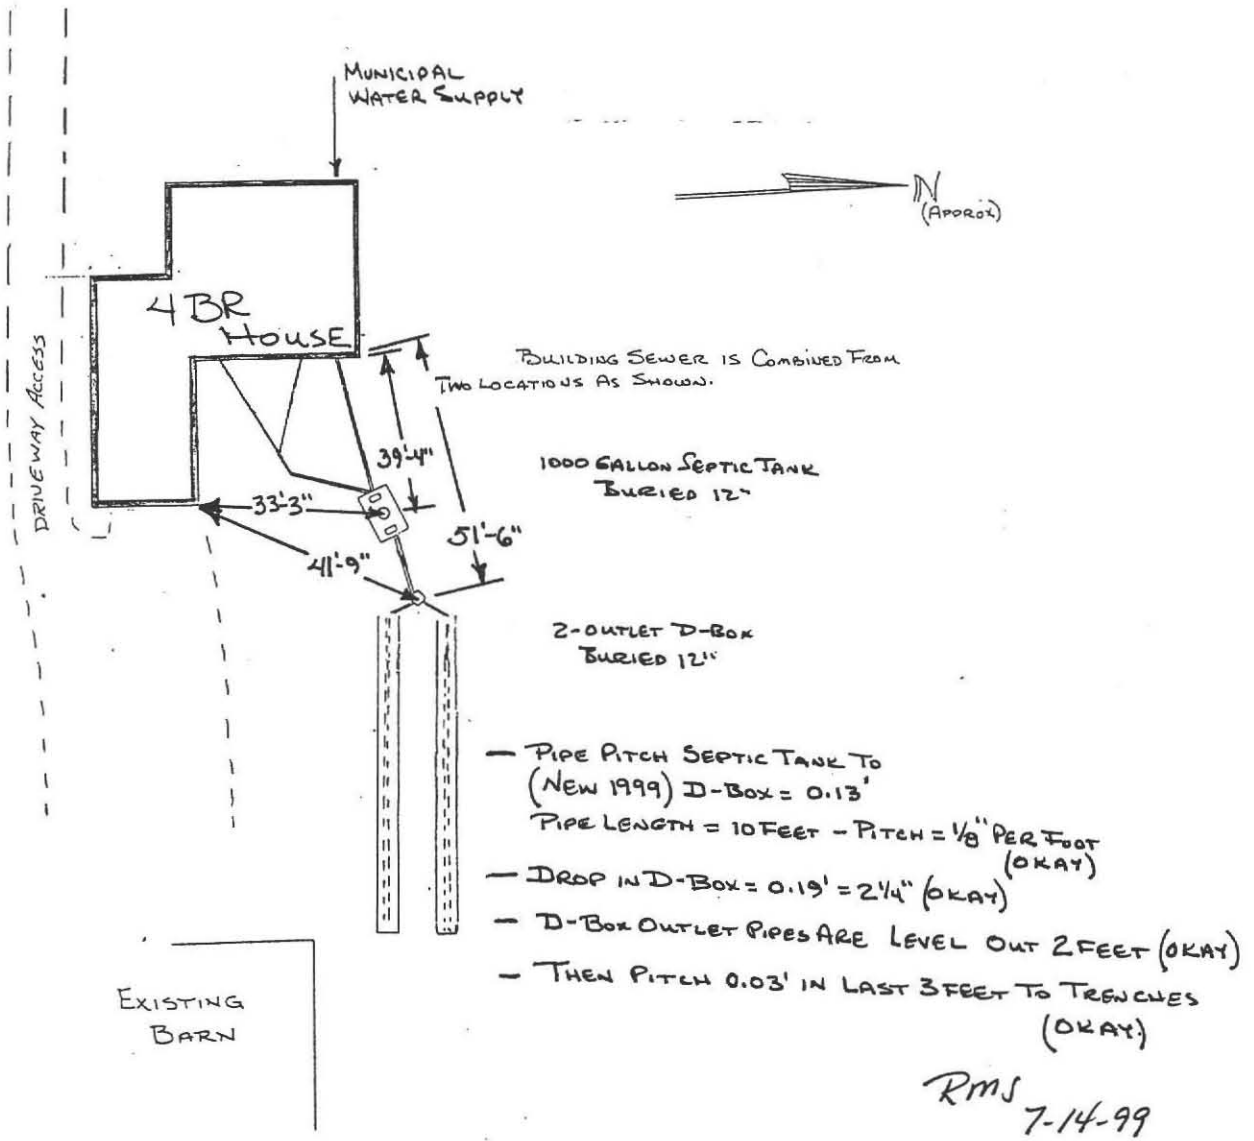 MUNICIPAL
WATER SUPPLY
N
(APPROX)
4 BR
HOUSE
DRIVEWAY ACCESS
BUILDING SEWER IS COMBINED FROM
TWO LOCATIONS AS SHOWN.
39'-4"
1000 GALLON SEPTIC TANK
BURIED 12"
33'-3"
51'-6"
41'-9"
2-OUTLET D-BOX
BURIED 12"
- PIPE PITCH SEPTIC TANK TO
(NEW 1999) D-BOX = 0.13'
PIPE LENGTH = 10 FEET - PITCH = 1/8" PER FOOT
(OKAY)
- DROP IN D-BOX = 0.19' = 2 1/4" (OKAY)
- D-BOX OUTLET PIPES ARE LEVEL OUT 2 FEET (OKAY)
- THEN PITCH 0.03' IN LAST 3 FEET TO TRENCHES
(OKAY)
EXISTING
BARN
RMS
7-14-99